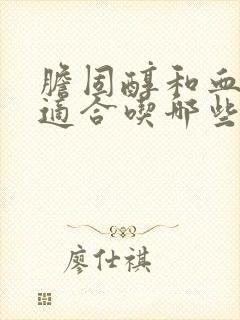 膽固醇和血
適合喫那些
廖仕祺